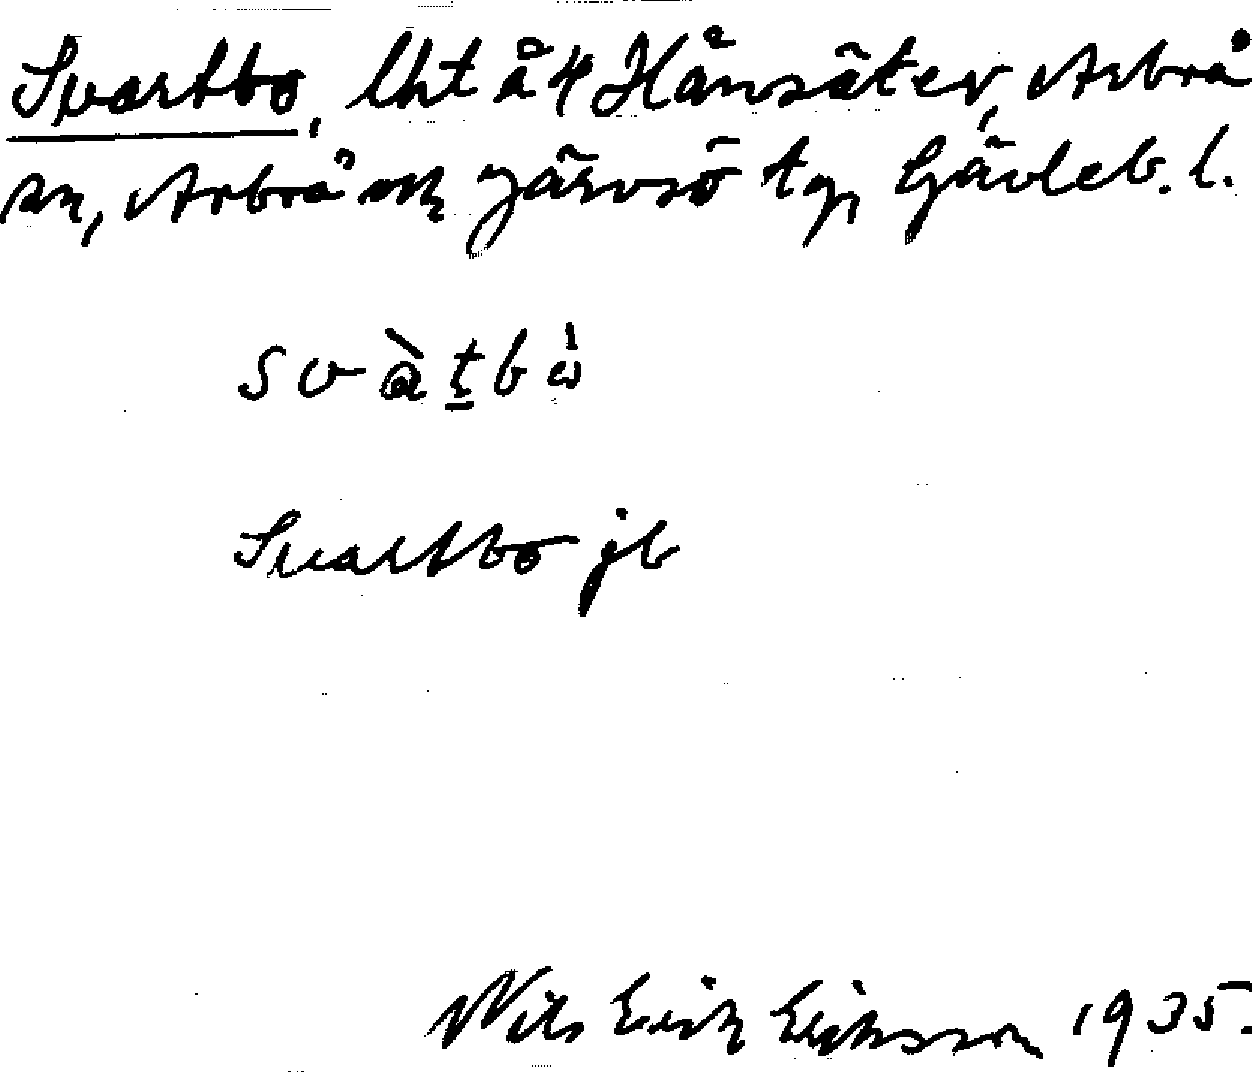 Svartbo, lht å 4 Hånsäter, Arbrå
sn, Arbrå och Järvsö tg, Gävleb. l.
Svartbo jb
Nils Erik Eriksson 1935.